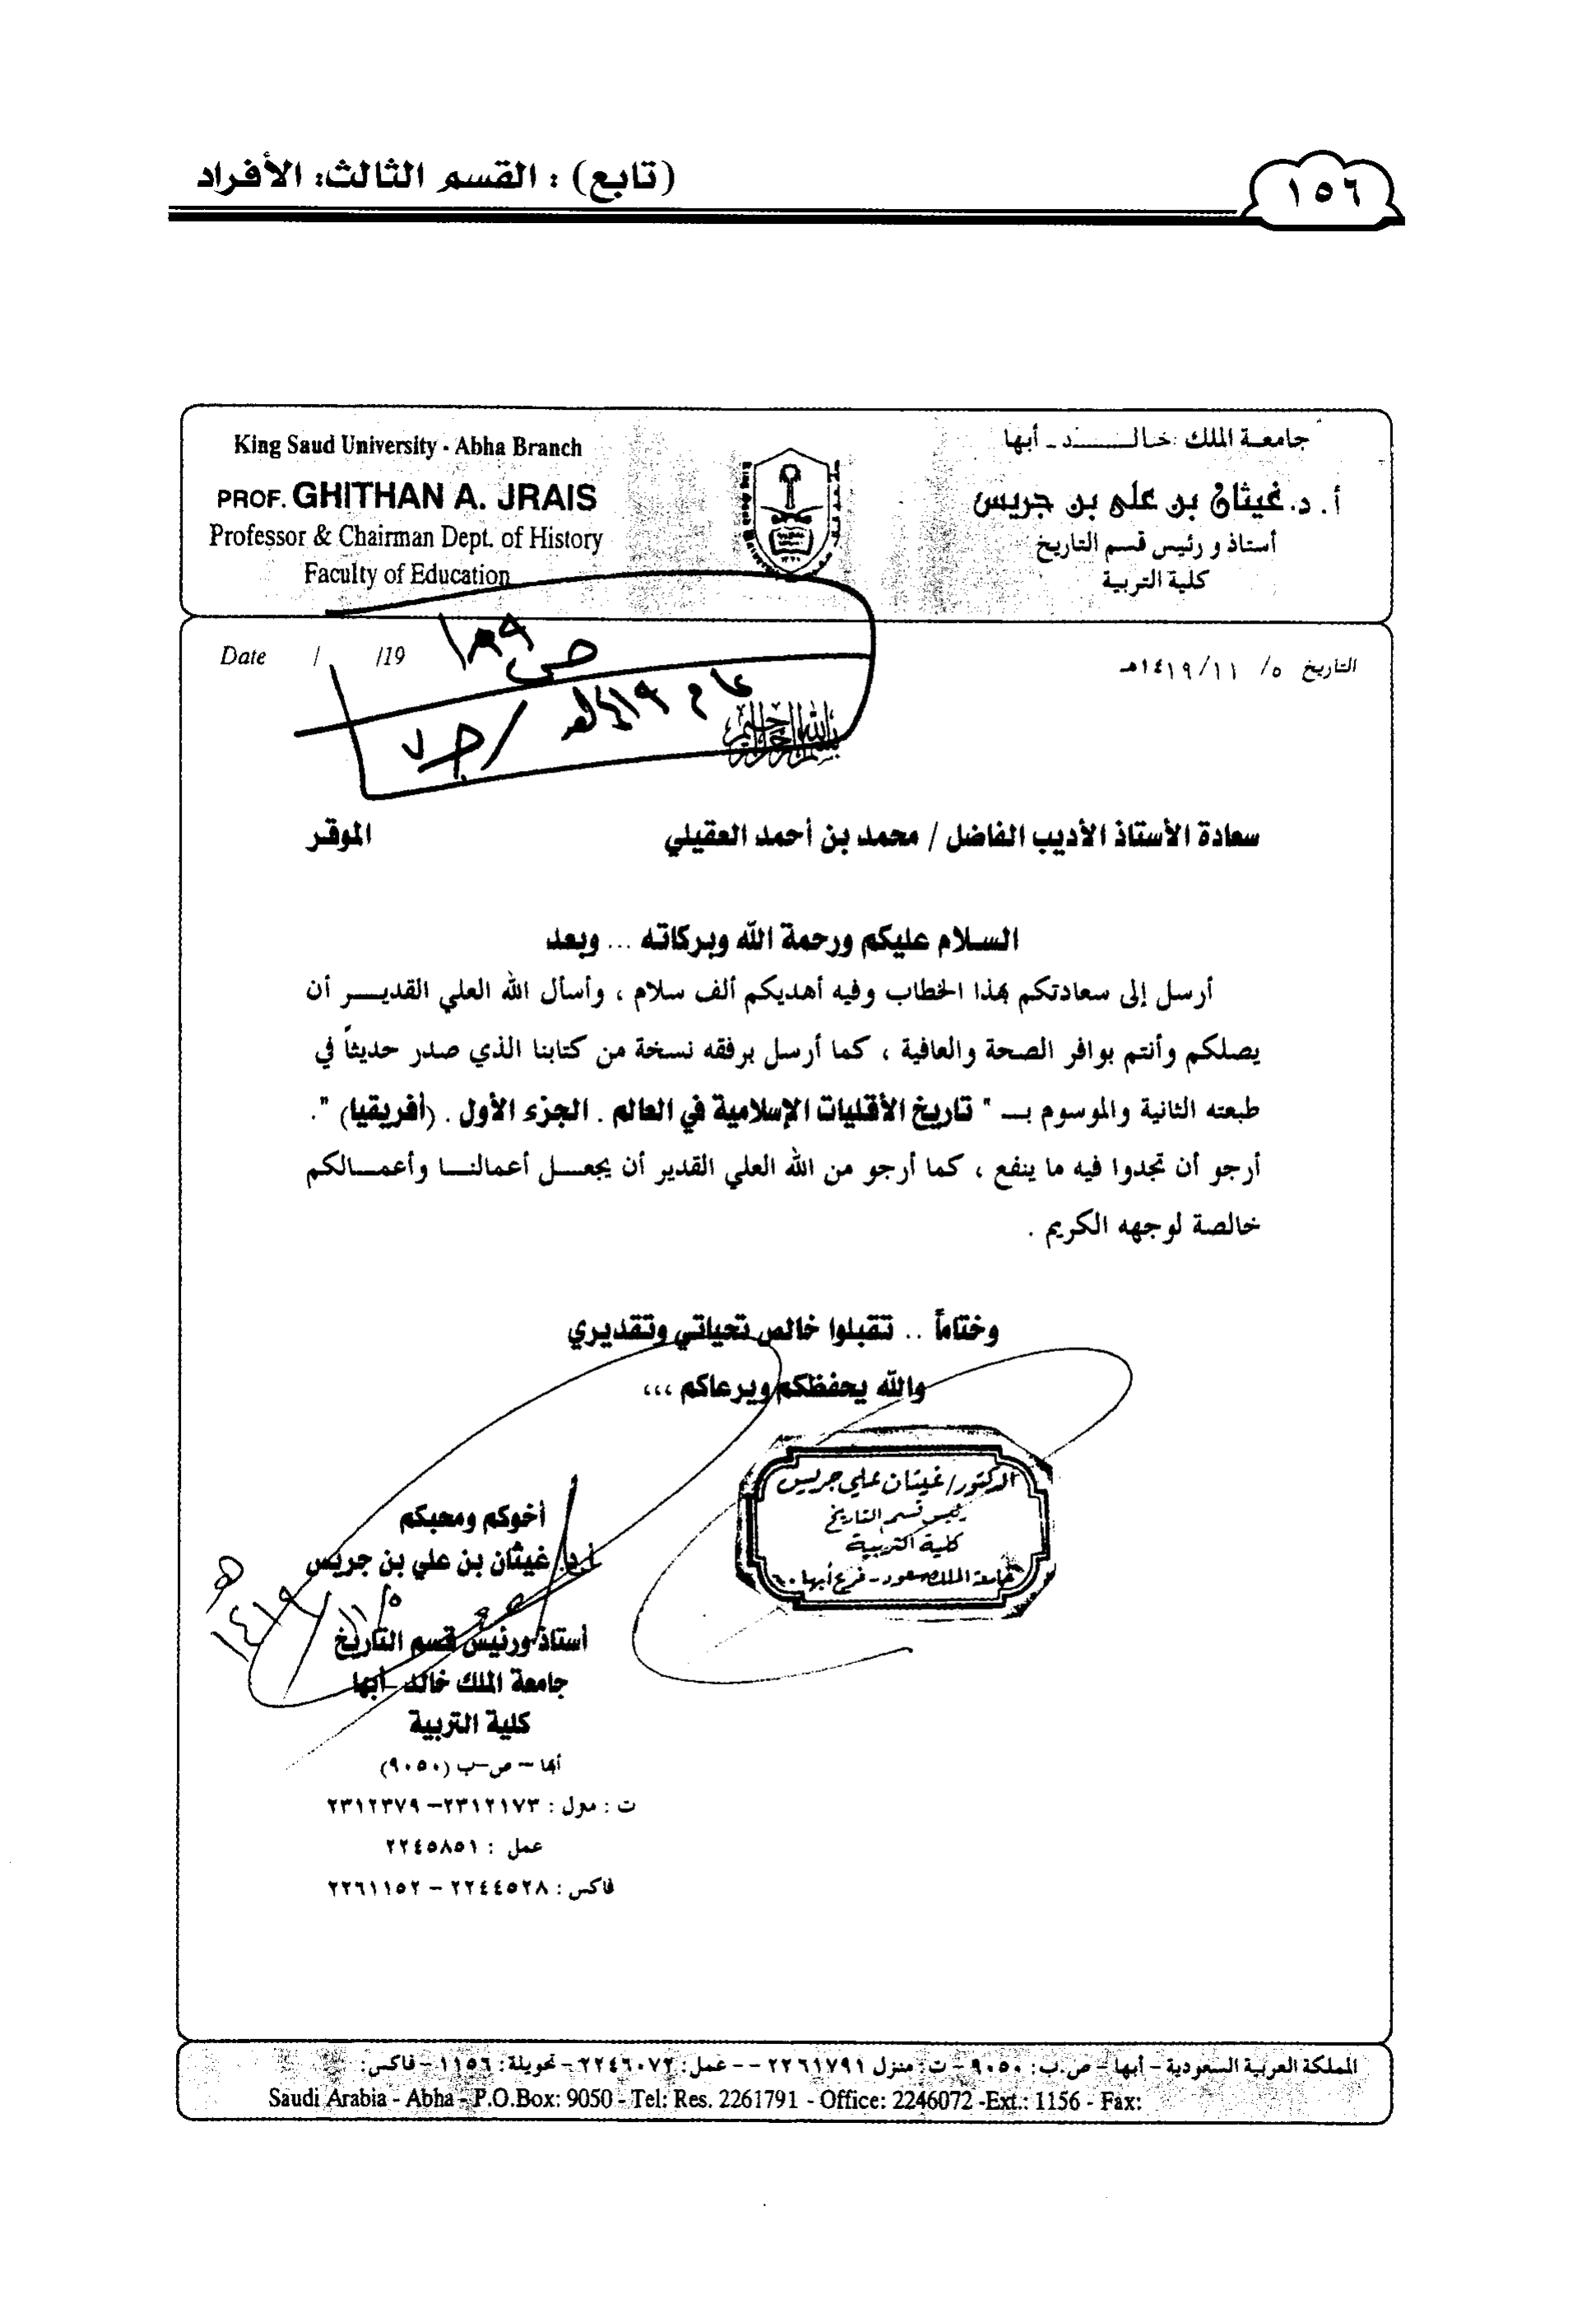 (تابع) : القسم الثالث: الأفراد
١٥٦
جامعة الملك خالـــــد ـ أبها
أ . د. غيثان بن على بن جريس
أستاذ و رئيس قسم التاريخ
كلية التربية
King Saud University - Abha Branch
PROF. GHITHAN A. JRAIS
Professor & Chairman Dept. of History
Faculty of Education
التاريخ ٥/ ١١/ ١٤١٩هـ
Date / /19
ص ١٨٩
عام ١٤١٩هـ / جـ ٧
بسم الله الرحمن الرحيم
سعادة الأستاذ الأديب الفاضل / محمد بن أحمد العقيلي الموقر
السلام عليكم ورحمة الله وبركاته ... وبعد
أرسل إلى سعادتكم بهذا الخطاب وفيه أهديكم ألف سلام ، وأسأل الله العلي القديـــر أن
يصلكم وأنتم بوافر الصحة والعافية ، كما أرسل برفقه نسخة من كتابنا الذي صدر حديثاً في
طبعته الثانية والموسوم بـــ " تاريخ الأقليات الإسلامية في العالم . الجزء الأول . (أفريقيا) ".
أرجو أن تجدوا فيه ما ينفع ، كما أرجو من الله العلي القدير أن يجعـــل أعمالنـــا وأعمـــالكم
خالصة لوجهه الكريم .
وختاماً .. تقبلوا خالص تحياتي وتقديري
والله يحفظكم ويرعاكم ،،،
الدكتور/ غيثان علي جريس
رئيس قسم التاريخ
كلية التربية
جامعة الملك سعود - فرع أبها
أخوكم ومحبكم
أ.د. غيثان بن علي بن جريس
٥/ ١١/ ١٤١٩ هـ
أستاذ ورئيس قسم التاريخ
جامعة الملك خالد – أبها
كلية التربية
أبها – ص–ب (٩٠٥٠)
ت : مترل : ٢٣١٢١٧٣– ٢٣١٢٣٧٩
عمل : ٢٢٤٥٨٥١
فاكس : ٢٢٤٤٥٢٨ – ٢٢٦١١٥٢
المملكة العربية السعودية – أبها – ص.ب: ٩٠٥٠ – ت: منزل ٢٢٦١٧٩١ – – عمل: ٢٢٤٦٠٧٢ – تحويلة: ١١٥٦ – فاكس:
Saudi Arabia - Abha - P.O.Box: 9050 - Tel: Res. 2261791 - Office: 2246072 -Ext.: 1156 - Fax: